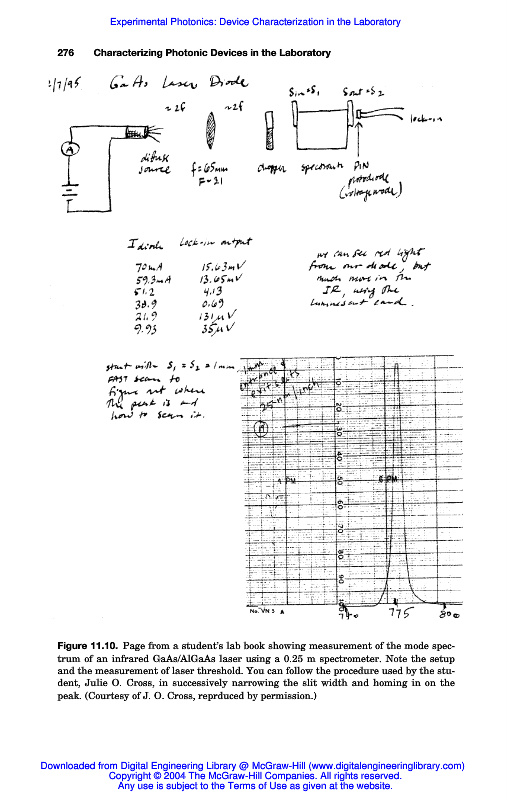 Experimental Photonics: Device Characterization in the Laboratory
276 Characterizing Photonic Devices in the Laboratory
1/7/95 GaAs Laser Diode
Sin=S1 Sout=S2
~2f ~2f
lock-in
A
diffuse source
f=65mm
F-21
chopper spectrometer PIN photodiode
(voltage mode)
I diode Lock-in output
70mA 15.63mV
59.3mA 13.65mV
51.2 4.13
38.9 0.69
21.9 131μV
9.93 35μV
we can see red light
from our diode, but
much more in the
IR, using the
luminescent card.
start with S1 = S2 = 1mm
FAST scan to
figure out where
the peak is and
how to scan it.
1mm
entrance &
exit slits
25nm/inch
A
10
20
30
40
50
60
70
80
90
100
No. VN 5 A
740 775 800
Figure 11.10. Page from a student's lab book showing measurement of the mode spec-
trum of an infrared GaAs/AlGaAs laser using a 0.25 m spectrometer. Note the setup
and the measurement of laser threshold. You can follow the procedure used by the stu-
dent, Julie O. Cross, in successively narrowing the slit width and homing in on the
peak. (Courtesy of J. O. Cross, reprduced by permission.)
Downloaded from Digital Engineering Library @ McGraw-Hill (www.digitalengineeringlibrary.com)
Copyright © 2004 The McGraw-Hill Companies. All rights reserved.
Any use is subject to the Terms of Use as given at the website.